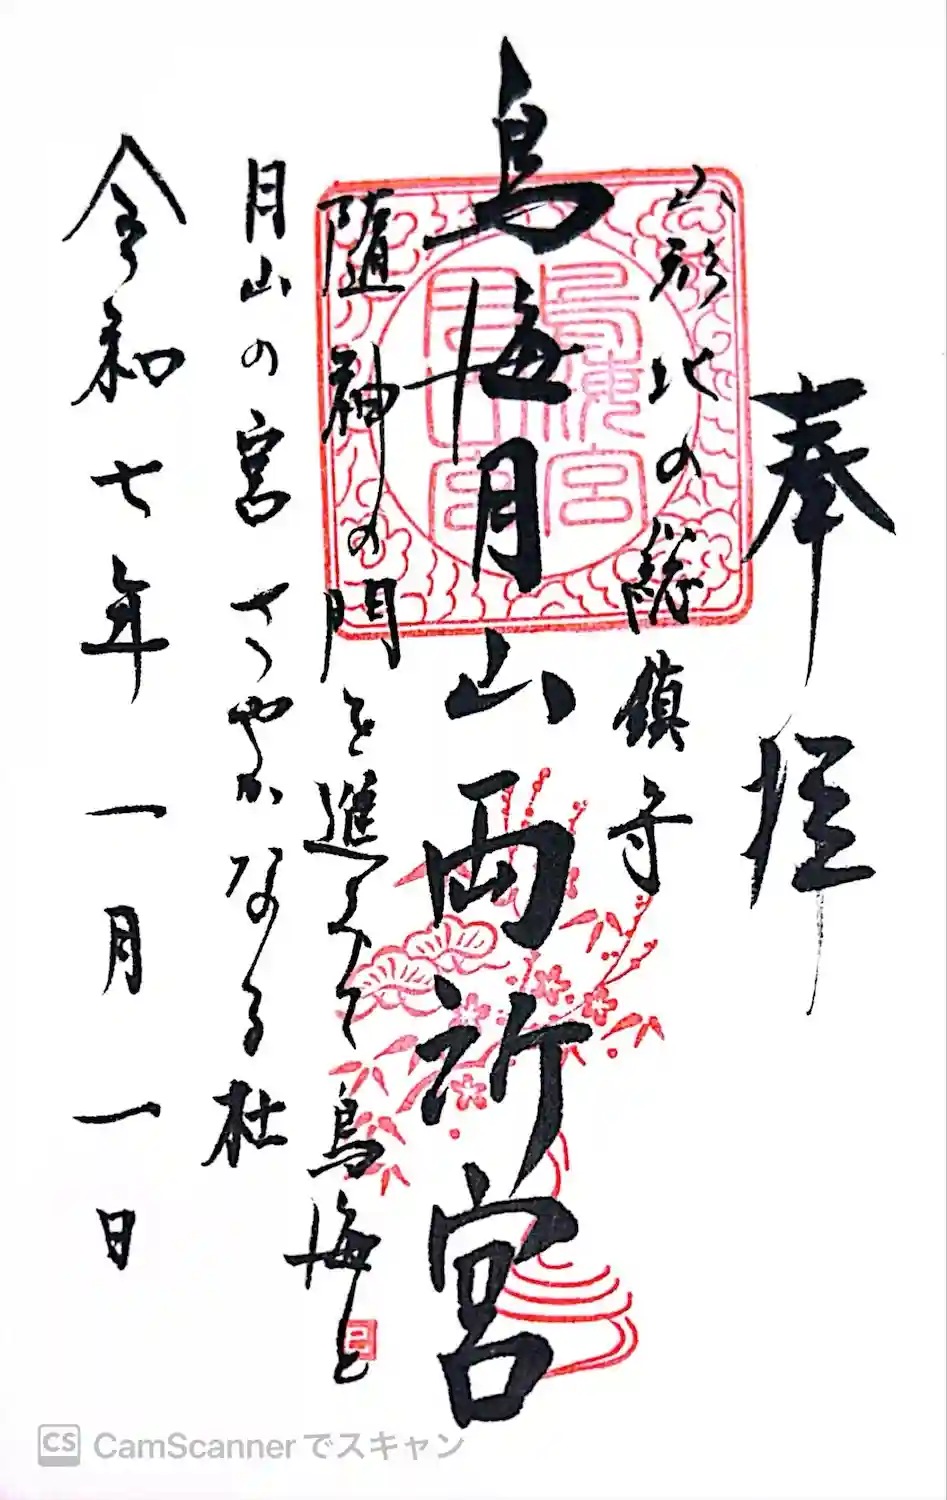 奉拝
山形北の総鎮守
鳥海月山両所宮
随神の門を進みて鳥海と
月山の宮さやかなる杜
令和七年一月一日
鳥海宮
月山宮
CS CamScannerでスキャン